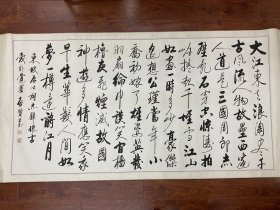 大江東去浪淘尽千
古風流人物故壘西邊
人道是三國周郎赤
壁亂石穿空驚濤拍
岸捲起千堆雪江山
如畫一時多少豪傑
遙想公瑾當年小
喬初嫁了雄姿英發
羽扇綸巾談笑間檣
櫓灰飛煙滅故國
神遊多情應笑我
早生華髮人間如
夢一樽還酹江月
東坡居士詞赤壁懷古